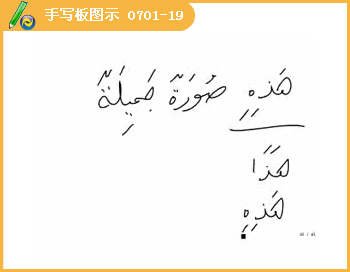 手写板图示 0701-19
هَذِهِ صُوْرَةٌ جَمِيلَةٌ
هَذَا
هَذِهِ